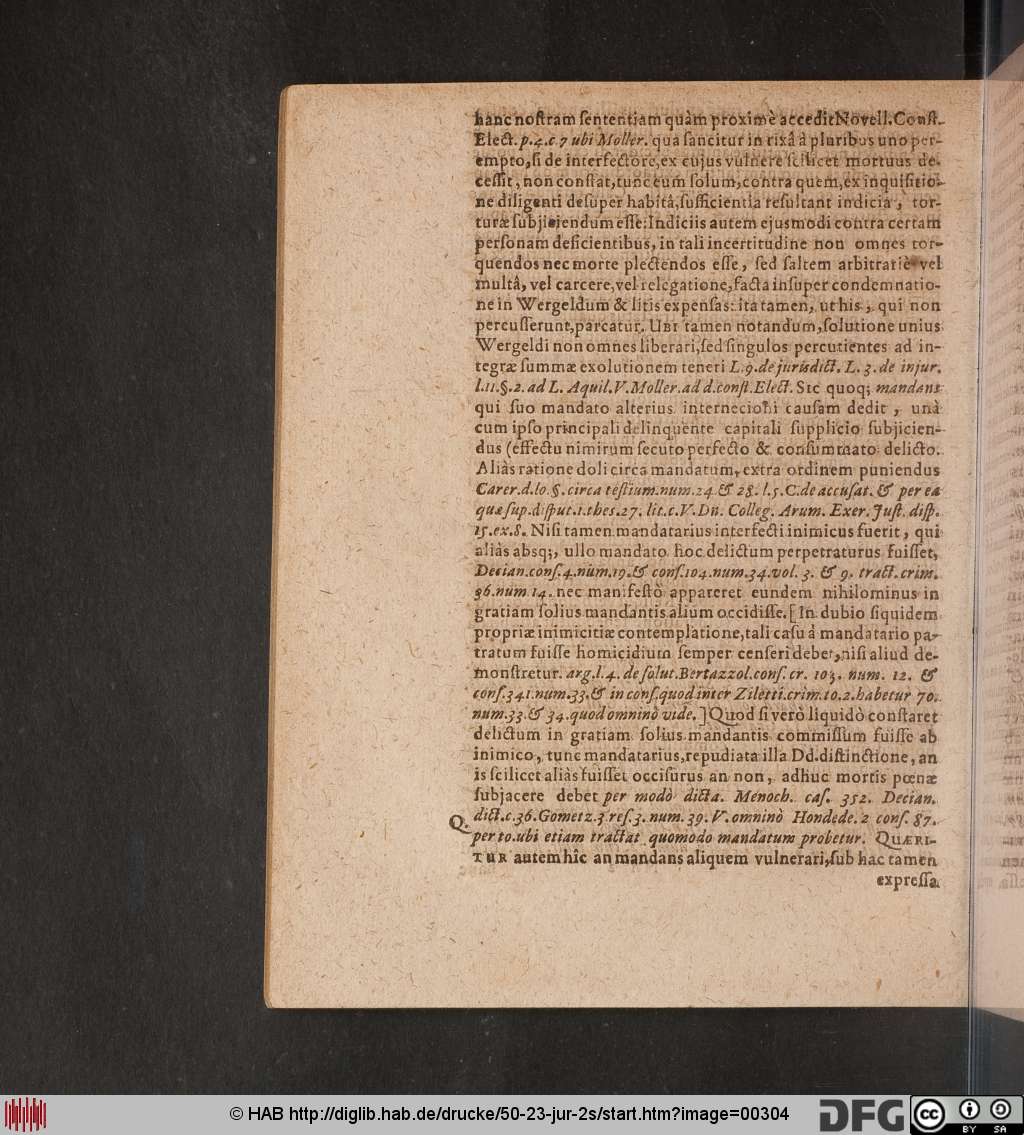 hanc noſtram ſententiam quàm proximè accedit Novell. Conſt.
Elect. p. 4. c. 7 ubi Moller. qua ſancitur in rixâ à pluribus uno per-
empto, ſi de interfectore, ex cujus vulnere ſcilicet mortuus de-
ceſſit, non conſtat, tunc eum ſolum, contra quem, ex inquiſitio-
ne diligenti deſuper habitâ, ſufficientia reſultant indicia, tor-
turæ ſubjiciendum eſſe: Indiciis autem ejusmodi contra certam
perſonam deficientibus, in tali incertitudine non omnes tor-
quendos nec morte plectendos eſſe, ſed ſaltem arbitrariè vel
multâ, vel carcere, vel relegatione, facta inſuper condemnatio-
ne in Wergeldum & litis expenſas: ita tamen, ut his, qui non
percuſſerunt, parcatur. UBI tamen notandum, ſolutione unius
Wergeldi non omnes liberari, ſed ſingulos percutientes ad in-
tegræ ſummæ exolutionem teneri L. 9. de jurisdict. L. 3. de injur.
l. 11. §. 2. ad L. Aquil. V. Moller. ad d. conſt. Elect. Sic quoq; mandans
qui ſuo mandato alterius internecioni cauſam dedit, unà
cum ipſo principali delinquente capitali ſupplicio ſubjicien-
dus (effectu nimirum ſecuto perfecto & conſummato delicto.
Aliàs ratione doli circa mandatum, extra ordinem puniendus
Carer. d. lo. §. circa teſtium. num. 24. & 28. l. 5. C. de accuſat. & per ea
quæ ſup. diſput. 1. theſ. 27. lit. c. V. Dn. Colleg. Arum. Exer. Juſt. diſp.
15. ex. 8. Niſi tamen mandatarius interfecti inimicus fuerit, qui
aliàs absq;, ullo mandato hoc delictum perpetraturus fuiſſet,
Decian. conſ. 4. num. 19. & conſ. 104. num. 34. vol. 3. & 9. tract. crim.
36. num 14. nec manifeſtò appareret eundem nihilominus in
gratiam ſolius mandantis alium occidiſſe. [In dubio ſiquidem
propriæ inimicitiæ contemplatione, tali caſu à mandatario pa-
tratum fuiſſe homicidium ſemper cenſeri debet, niſi aliud de-
monſtretur. arg. l. 4. de ſolut. Bertazzol. conſ. cr. 103. num. 12. &
conſ. 341. num. 33. & in conſ. quod inter Ziletti. crim. to. 2. habetur 70.
num. 33. & 34. quod omninò vide.] Quod ſi verò liquidò conſtaret
delictum in gratiam ſolius mandantis commiſſum fuiſſe ab
inimico, tunc mandatarius, repudiata illa Dd. diſtinctione, an
is ſcilicet aliàs fuiſſet occiſurus an non, adhuc mortis pœnæ
ſubjacere debet per modò dicta. Menoch. caſ. 352. Decian.
dict. c. 36. Gometz. 3 reſ. 3. num. 39. V. omninò Hondede. 2 conſ. 87.
Q. per to. ubi etiam tractat quomodo mandatum probetur. QUÆRI-
TUR autem hîc an mandans aliquem vulnerari, ſub hac tamen
expreſſa
© HAB http://diglib.hab.de/drucke/50-23-jur-2s/start.htm?image=00304
DFG
cc
BY SA